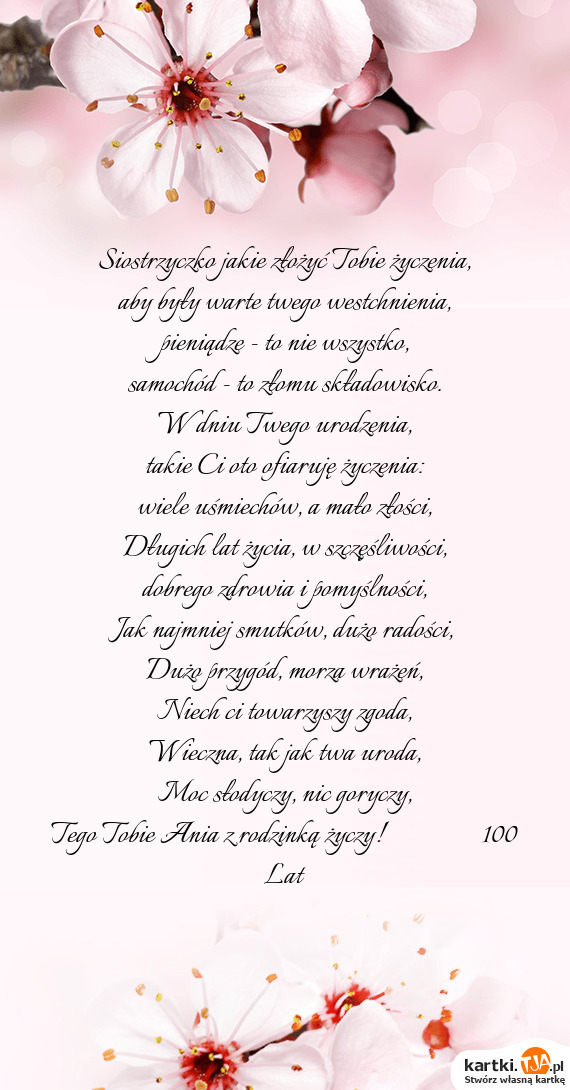 Siostrzyczko jakie złożyć Tobie życzenia,
aby były warte twego westchnienia,
pieniądze - to nie wszystko,
samochód - to złomu składowisko.
W dniu Twego urodzenia,
takie Ci oto ofiaruję życzenia:
wiele uśmiechów, a mało złości,
Długich lat życia, w szczęśliwości,
dobrego zdrowia i pomyślności,
Jak najmniej smutków, dużo radości,
Dużo przygód, morza wrażeń,
Niech ci towarzyszy zgoda,
Wieczna, tak jak twa uroda,
Moc słodyczy, nic goryczy,
Tego Tobie Ania z rodzinką życzy! 100
Lat
kartki.TJA.pl
Stwórz własną kartkę